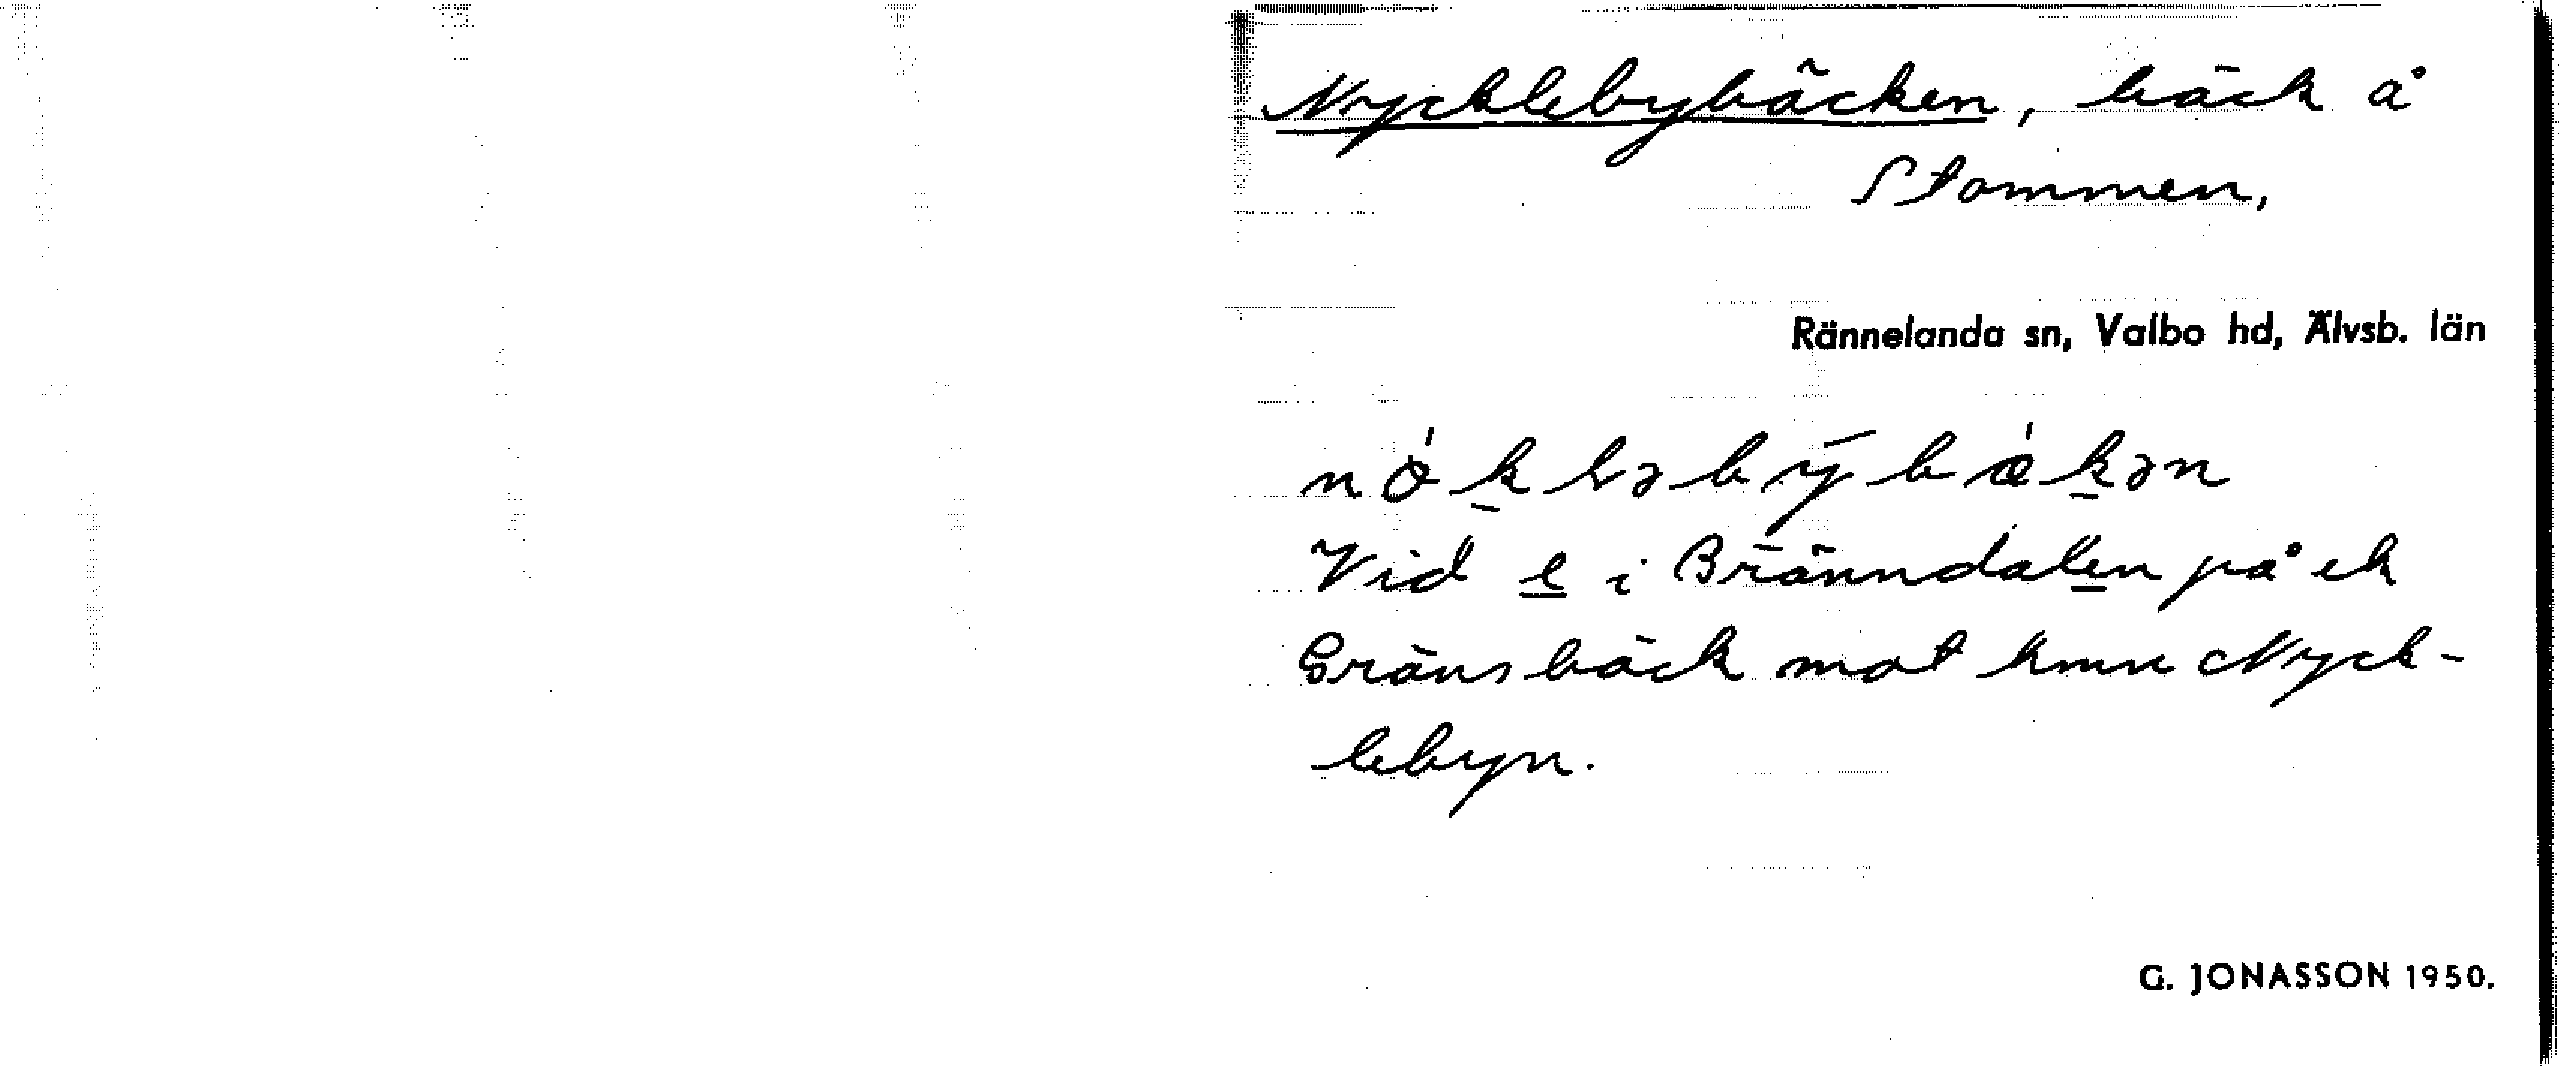 Nycklebybäcken, bäck å
Stommen,
Rännelanda sn, Valbo hd, Älvsb. län
nø̀kləbýbæ̀kən
Vid e i Bränndalen på ek
Gränsbäck mot hmn Nyck-
lebyn.
G. JONASSON 1950.